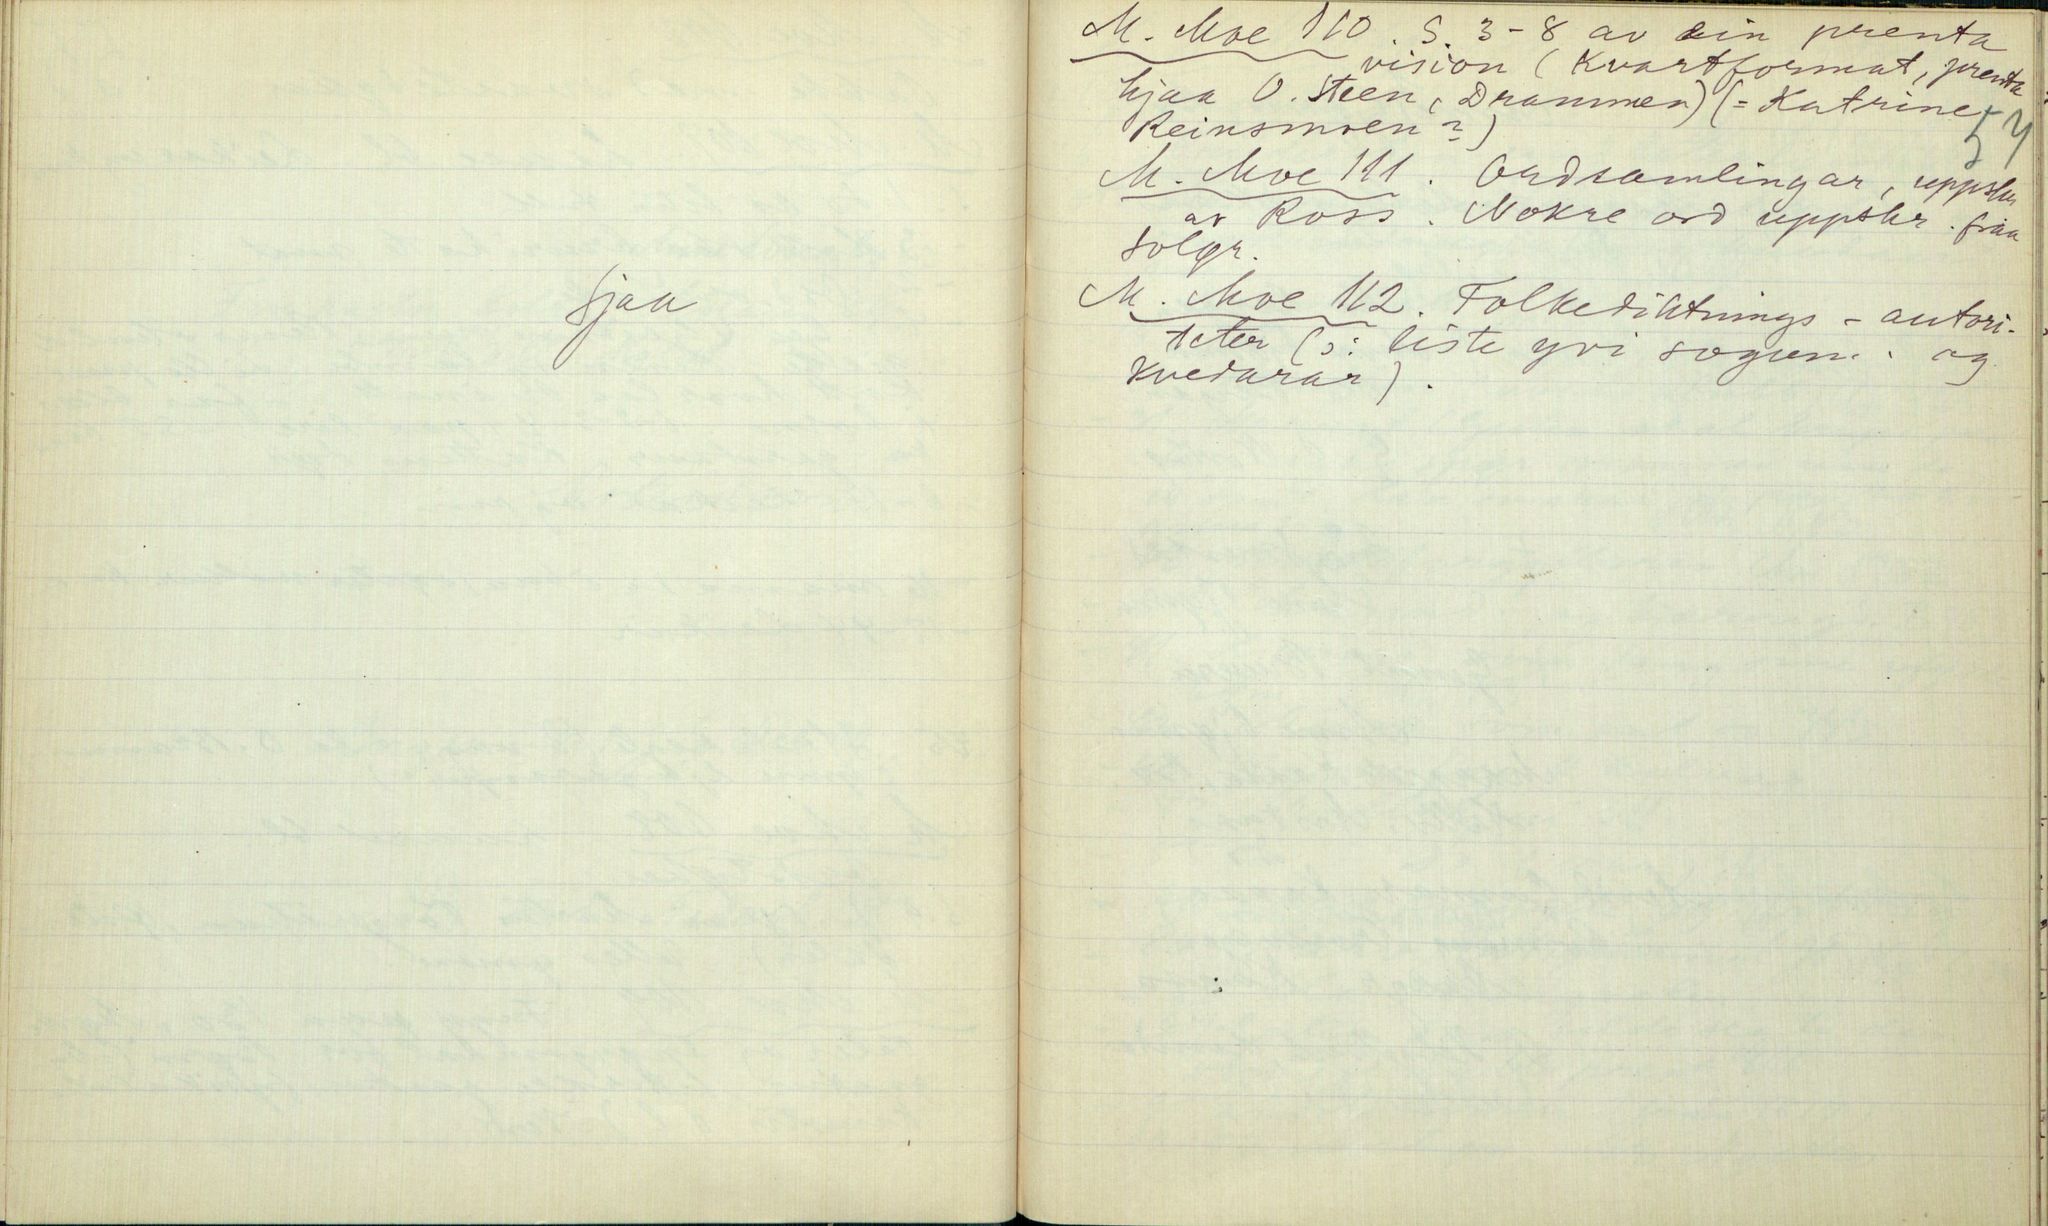 Sjaa
M. Moe 110. S. 3-8 av ein prenta
vision (Kvartformat, prenta
hjaa O. Steen, Drammen) (= Katrine
Reinsmoen?)
57
M. Moe 111. Ordsamlingar, uppskr
av Ross. Nokre ord uppskr. fraa
Solør.
M. Moe 112. Folkediktnings-autori-
teter (ɔ: liste yvi sogum. og
Kvedarar).